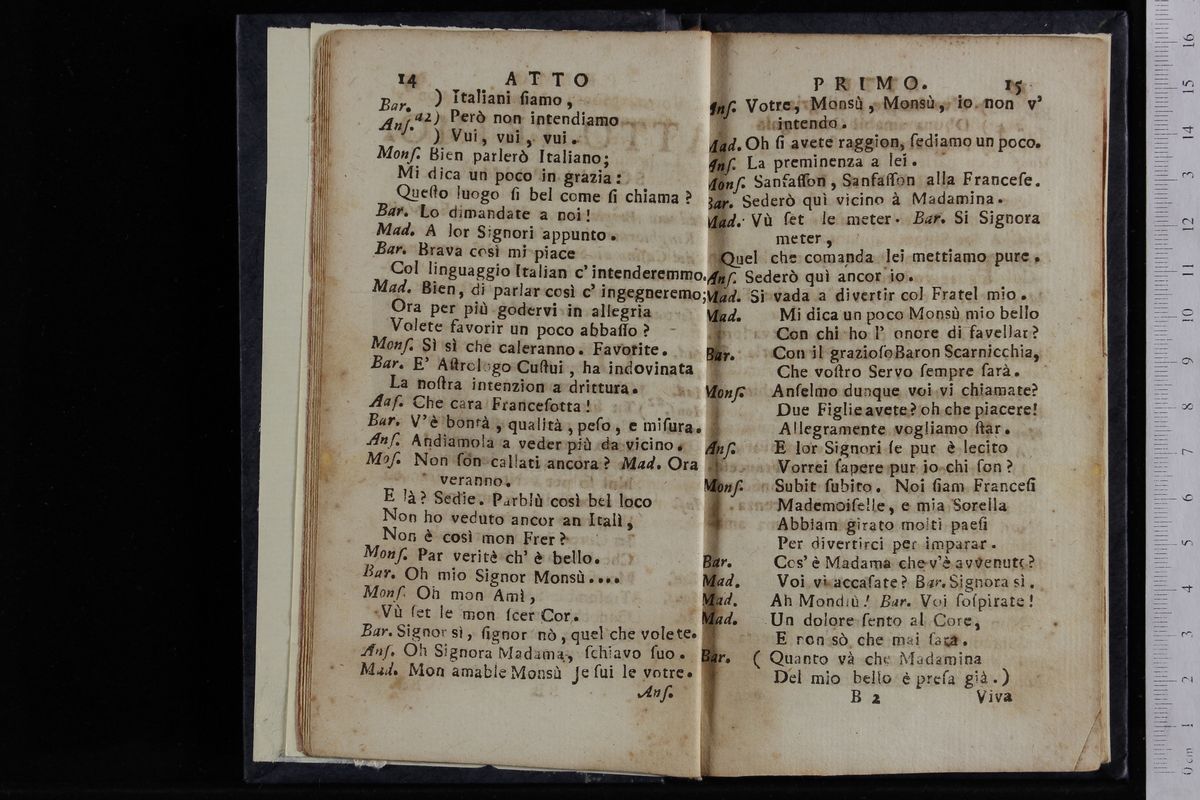 14 ATTO
Bar. ) Italiani ſiamo,
Anſ. a2) Però non intendiamo
) Vui, vui, vui.
Monſ. Bien parlerò Italiano;
Mi dica un poco in grazia:
Queſto luogo ſi bel come ſi chiama?
Bar. Lo dimandate a noi!
Mad. A lor Signori appunto.
Bar. Brava così mi piace
Col linguaggio Italian c' intenderemmo.
Mad. Bien, di parlar così c' ingegneremo;
Ora per più godervi in allegria
Volete favorir un poco abbaſſo?
Monſ. Sì sì che caleranno. Favorite.
Bar. E' Aſtrologo Cuſtui, ha indovinata
La noſtra intenzion a drittura.
Aaſ. Che cara Franceſotta!
Bar. V'è bontà, qualità, peſo, e miſura.
Anſ. Andiamola a veder più da vicino.
Moſ. Non ſon callati ancora? Mad. Ora
veranno.
E là? Sedie. Parblù così bel loco
Non ho veduto ancor an Italì,
Non è così mon Frer?
Monſ. Par veritè ch' è bello.
Bar. Oh mio Signor Monsù....
Monſ. Oh mon Amì,
Vù ſet le mon ſcer Cor.
Bar. Signor sì, ſignor nò, quel che volete.
Anſ. Oh Signora Madama, ſchiavo ſuo.
Mad. Mon amable Monsù Je ſui le votre.
Anſ.
PRIMO. 15
Anſ. Votre, Monsù, Monsù, io non v'
intendo.
Mad. Oh ſi avete raggion, ſediamo un poco.
Anſ. La preminenza a lei.
Monſ. Sanfaſſon, Sanfaſſon alla Franceſe.
Bar. Sederò quì vicino à Madamina.
Mad. Vù ſet le meter. Bar. Si Signora
meter,
Quel che comanda lei mettiamo pure.
Anſ. Sederò quì ancor io.
Mad. Si vada a divertir col Fratel mio.
Mad. Mi dica un poco Monsù mio bello
Con chi ho l' onore di favellar?
Bar. Con il grazioſo Baron Scarnicchia,
Che voſtro Servo ſempre ſarà.
Monſ. Anſelmo dunque voi vi chiamate?
Due Figlie avete? oh che piacere!
Allegramente vogliamo ſtar.
Anſ. E lor Signori ſe pur è lecito
Vorrei ſapere pur io chi ſon?
Monſ. Subit ſubito. Noi ſiam Franceſi
Mademoiſelle, e mia Sorella
Abbiam girato molti paeſi
Per divertirci per imparar.
Bar. Cos' è Madama che v'è avvenuto?
Mad. Voi vi accaſate? Bar. Signora sì.
Mad. Ah Mondiù! Bar. Voi ſoſpirate!
Mad. Un dolore ſento al Core,
E non sò che mai ſara.
Bar. ( Quanto và che Madamina
Del mio bello è preſa già.)
B 2 Viva